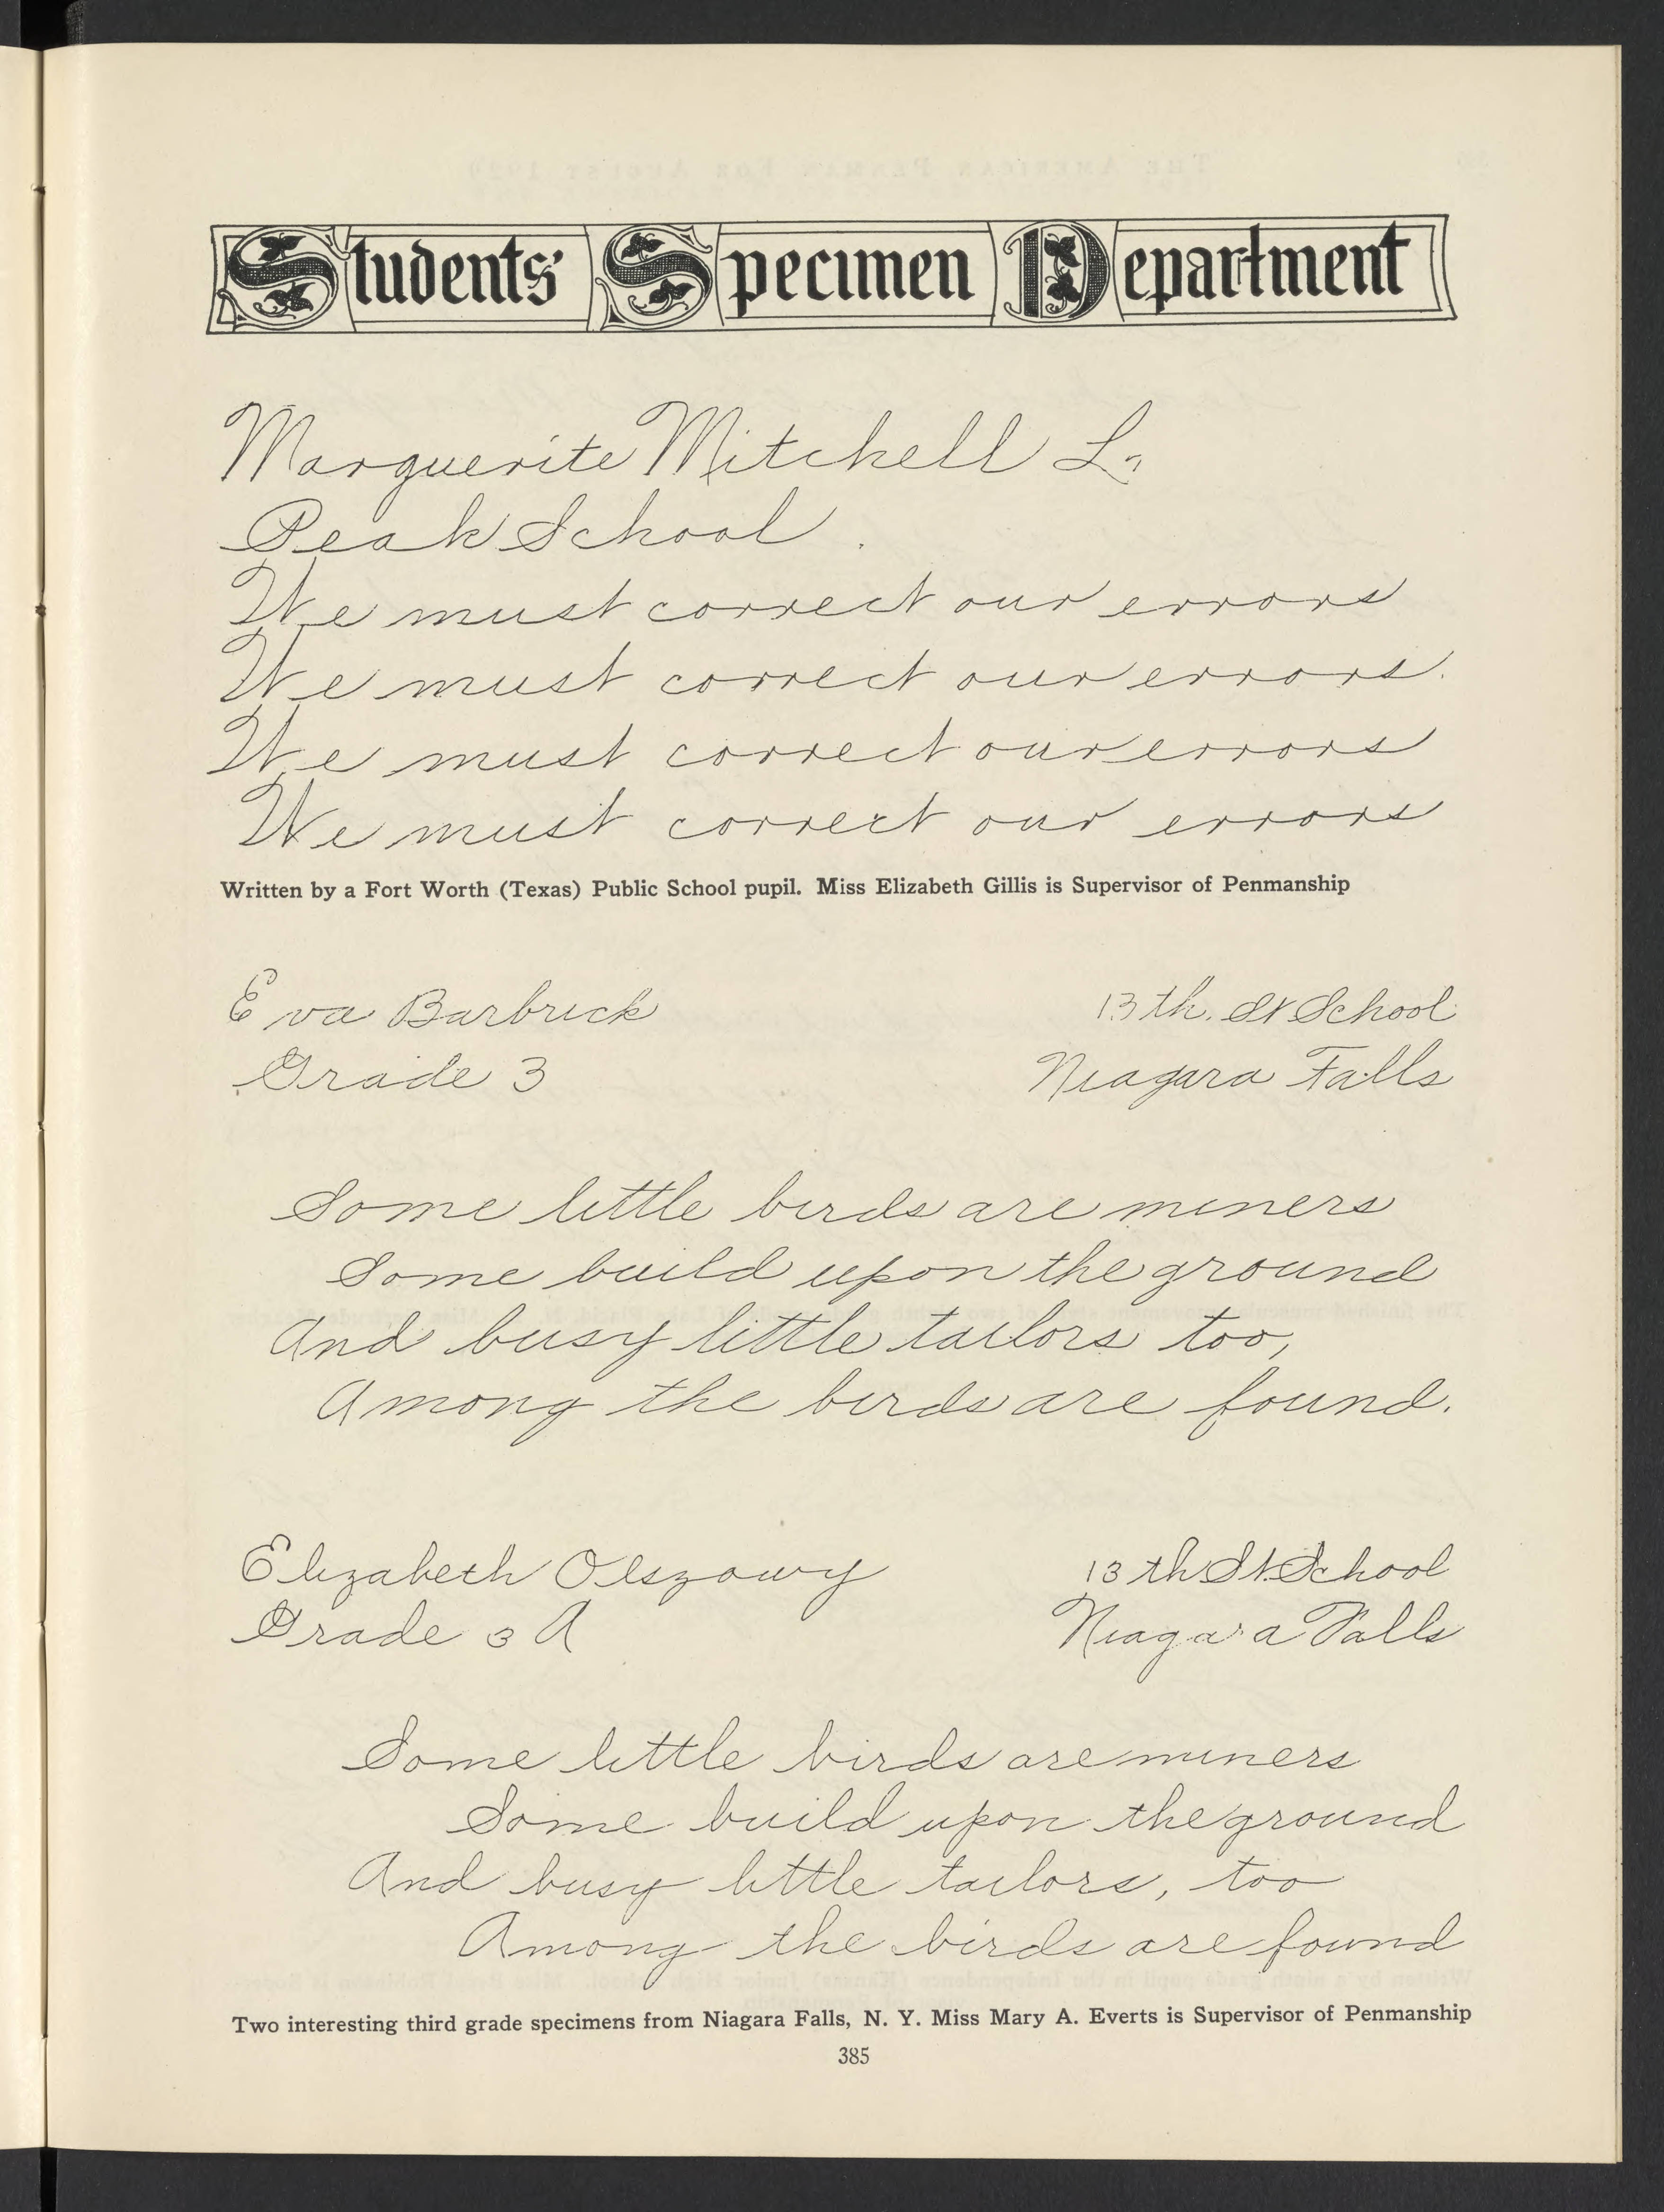 Students' Specimen Department
Marguerite Mitchell L
Peak School.
We must correct our errors
We must correct our errors.
We must correct our errors
We must correct our errors
Written by a Fort Worth (Texas) Public School pupil. Miss Elizabeth Gillis is Supervisor of Penmanship
Eva Barbrick 13th. St School
Grade 3 Niagara Falls
Some little birds are miners
Some build upon the ground
And busy little tailors too,
Among the birds are found.
Elizabeth Olszowy 13th St. School
Grade 3 A Niagara Falls
Some little birds are miners
Some build upon the ground
And busy little tailors, too
Among the birds are found
Two interesting third grade specimens from Niagara Falls, N. Y. Miss Mary A. Everts is Supervisor of Penmanship
385